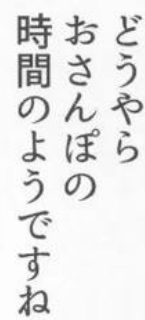 どうやら
おさんぽの
時間のようですね